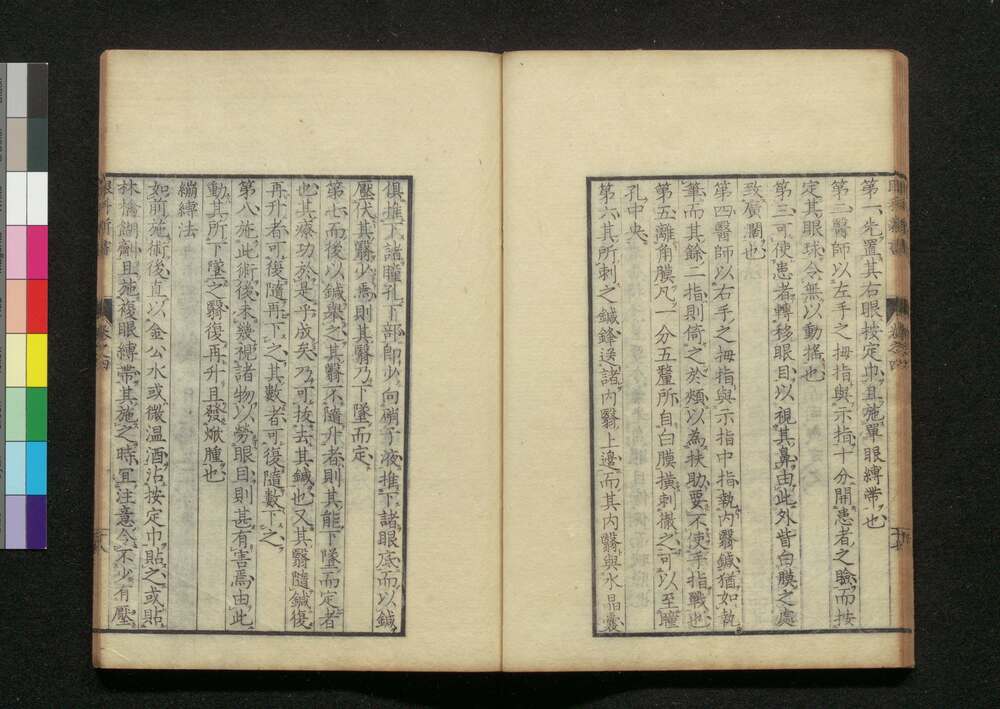 第一先置其右眼按定巾且施單眼縛帶也
第二醫師以左手之拇指與示指十分開患者之瞼而按
定其眼球令無以動搖也
第三可使患者轉移眼目以視其鼻由此外眥白膜之處
致廣濶也
第四醫師以右手之拇指與示指中指執内翳鍼猶如執
筆而其餘二指則倚之於頰以為扶助要不使手指戰也
第五離角膜凡一分五釐所自白膜横刺撤之可以至瞳
孔中央
第六其所刺之鍼鋒送諸内翳上邊而其内翳與水晶囊
俱推下諸瞳孔下部即少向硝子液推下諸眼底而以鍼
壓伏其翳少焉則其翳乃下墜而定
第七而後以鍼舉之其翳不隨升者則其能下墜而定者
也其療功於是乎成矣乃可拔去其鍼也又其翳隨鍼復
再升者可復隨再下之其數者可復隨數下之
第八施此術後未幾視諸物以勞眼目則甚有害焉由此
動其所下墜之翳復再升且發焮腫也
繃縛法
如前施術後直以金公水或微温酒沾按定巾貼之或貼
林檎餬劑且施複眼縛帶其施之時宜注意令不少有壓
眼科新書
卷之四